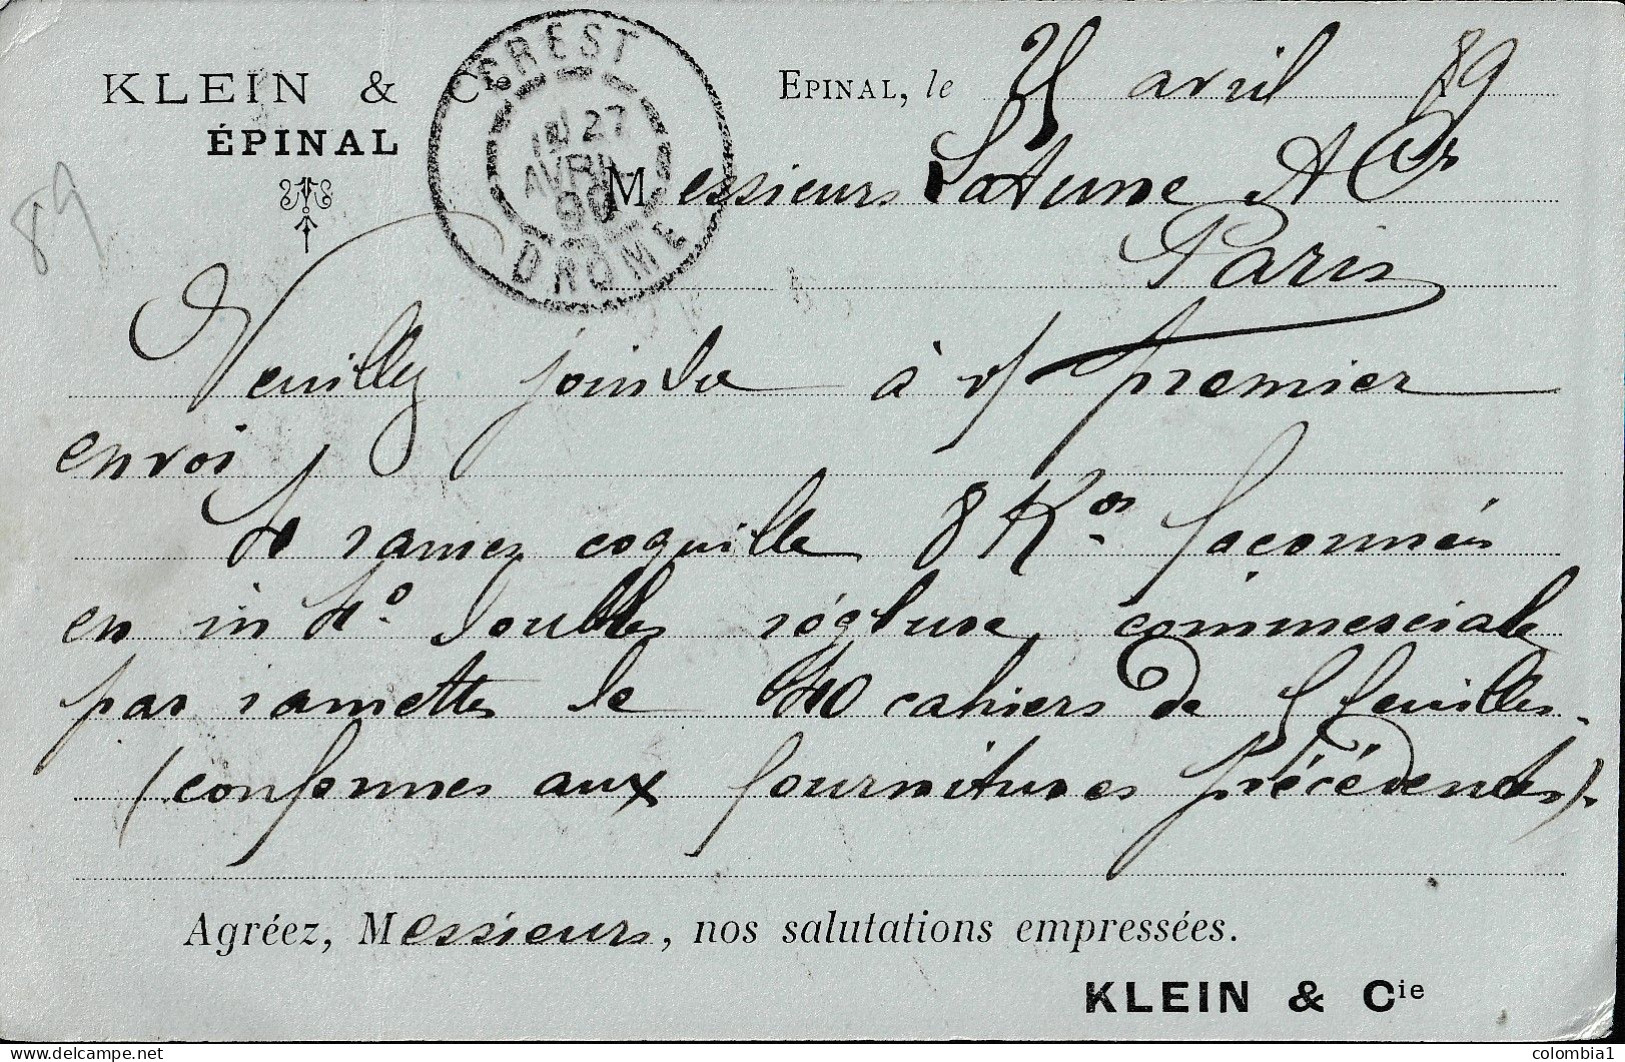 KLEIN & Cie
ÉPINAL
CREST
27
AVRIL
90
DROME
EPINAL, le 25 avril 89
89
Messieurs Latune & Cie
Paris
Veuillez joindre à v/ premier
envoi
ramez coquille 8 Kos façonnés
en in 4o doubles réglure commerciale
par ramettes de 40 cahiers de 5 feuilles.
(conformes aux fournitures précédentes).
Agréez, Messieurs, nos salutations empressées.
KLEIN & Cie
delcampe.net
colombia1